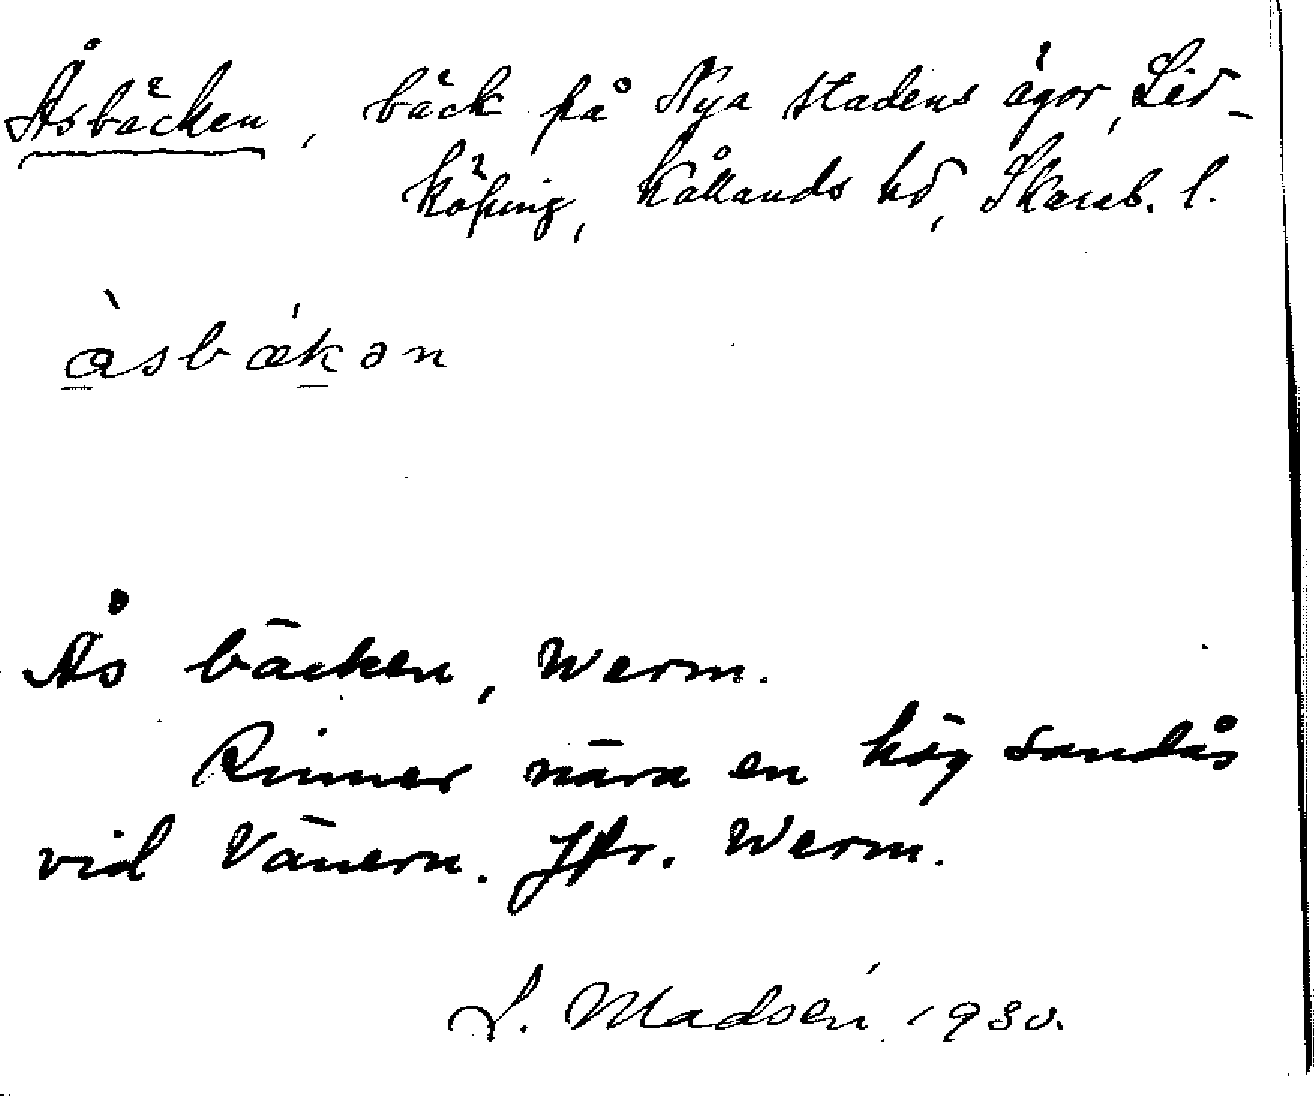 Åsbäcken, bäck på Nya stadens ägor, Lid-
köping, Kållands hd, Skarab. l.
àsbækən
Ås bäcken, Werm.
Rinner nära en hög sandås
vid Vänern. Jfr. Werm.
L. Madsén 1930.